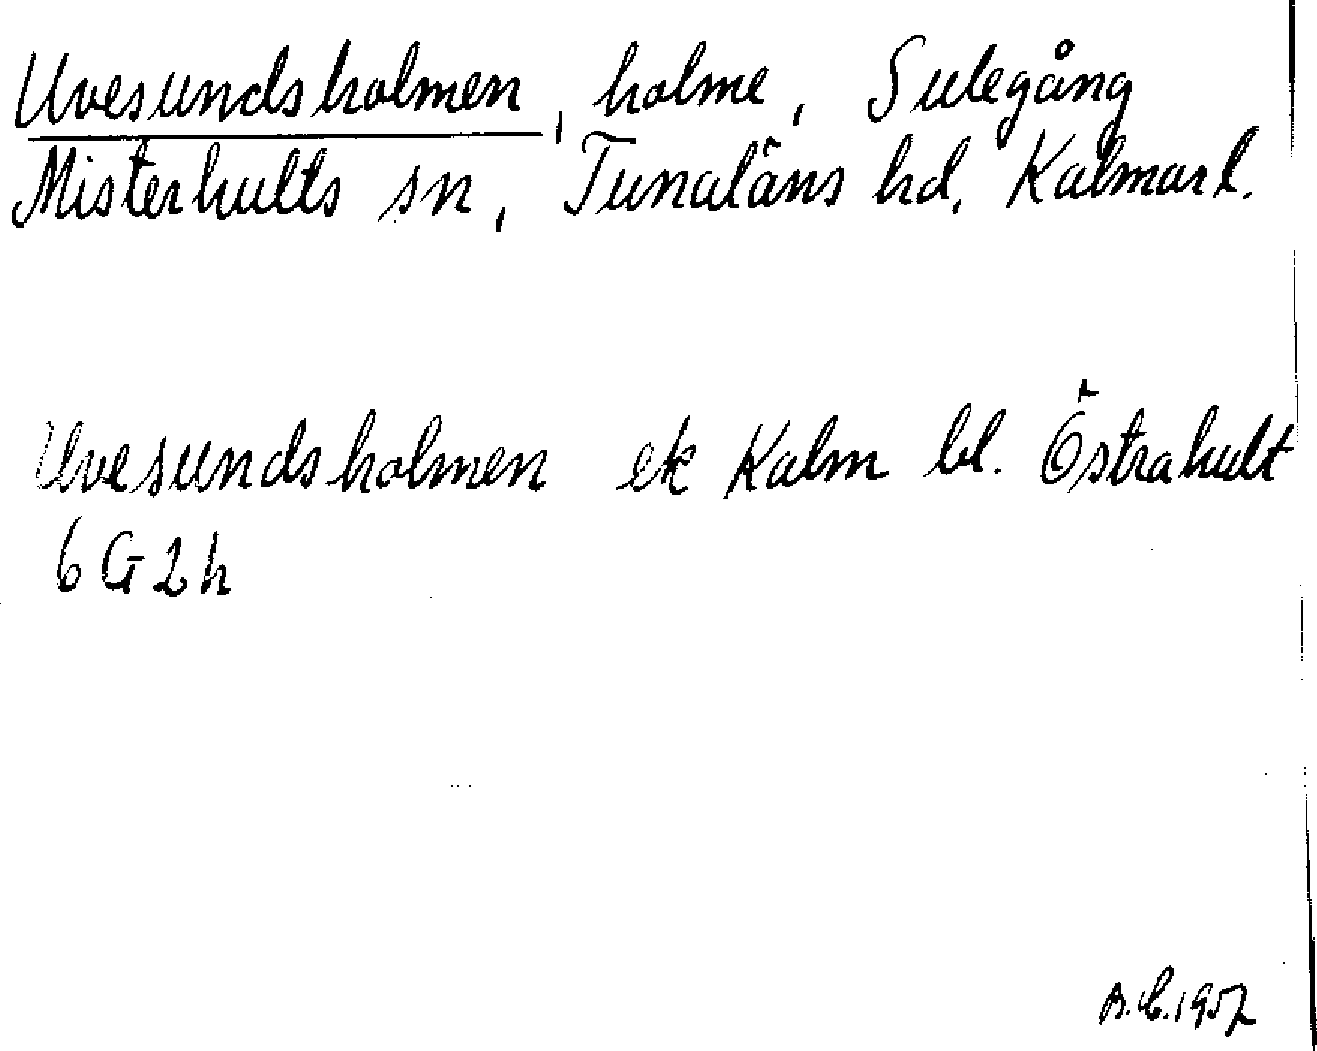 Uvesundsholmen, holme, Sulegång
Misterhults sn, Tunaläns hd, Kalmar l.
Uvesundsholmen ek Kalm bl. Östrahult
6 G 2 h
B.C. 1957